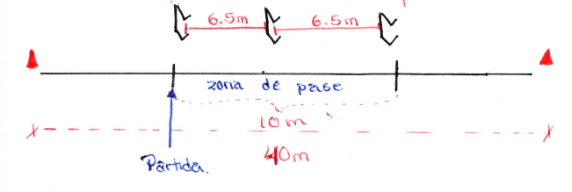 6.5m 6.5m
zona de pase
10m
40m
Partida.